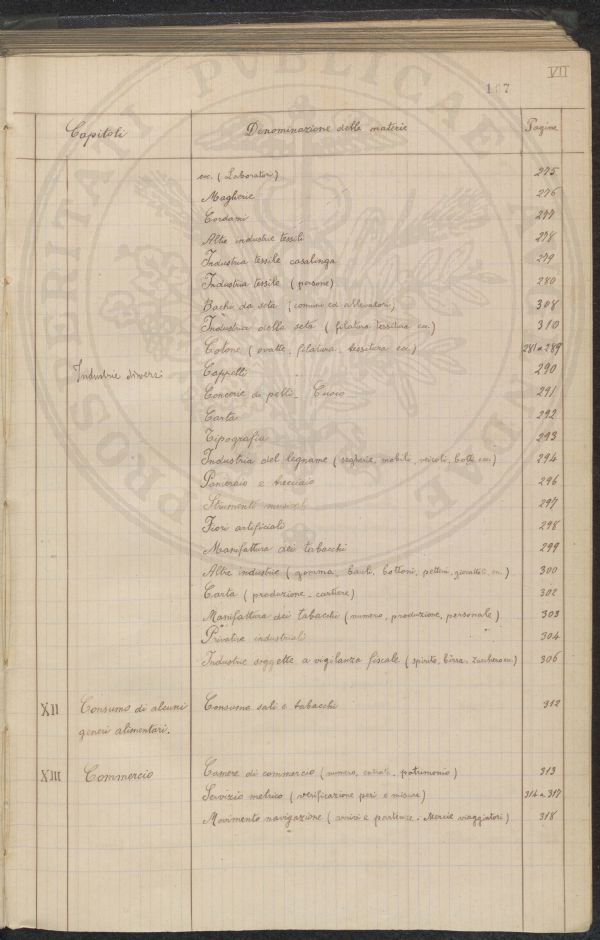 VII
187
Capitoli Denominazione delle materie Pagine
ecc. (Laboratori) 275
Maglierie 276
Cordami 277
Altre industrie tessili 278
Industria tessile casalinga 279
Industria tessile (persone) 280
Bachi da seta (comuni ed allevatori) 308
Industria della seta (filatura tessitura ecc.) 310
Cotone (ovatte, filatura, tessitura ecc.) 281 a 289
Industrie diverse Cappelli 290
Concerie di pelli - Cuoio 291
Carta 292
Tipografia 293
Industria del legname (segherie, mobili, veicoli, botti ecc.) 294
Panieraio e trecciaio 296
Strumenti musicali 297
Fiori artificiali 298
Manifattura dei tabacchi 299
Altre industrie (gomma, bauli, bottoni, pettini, giocattoli ecc.) 300
Carta (produzione - cartiere) 302
Manifattura dei tabacchi (numero, produzione, personale) 303
Privative industriali 304
Industrie soggette a vigilanza fiscale (spirito, birra, zucchero ecc.) 306
XII Consumo di alcuni Consumo sali e tabacchi 312
generi alimentari.
XIII Commercio Camere di commercio (numero, entrate, patrimonio) 313
Servizio metrico (verificazione pesi e misure) 314 a 317
Movimento navigazione (arrivi e partenze - Merci e viaggiatori) 318
PROSPERITATI PUBLICAE AUGENDAE